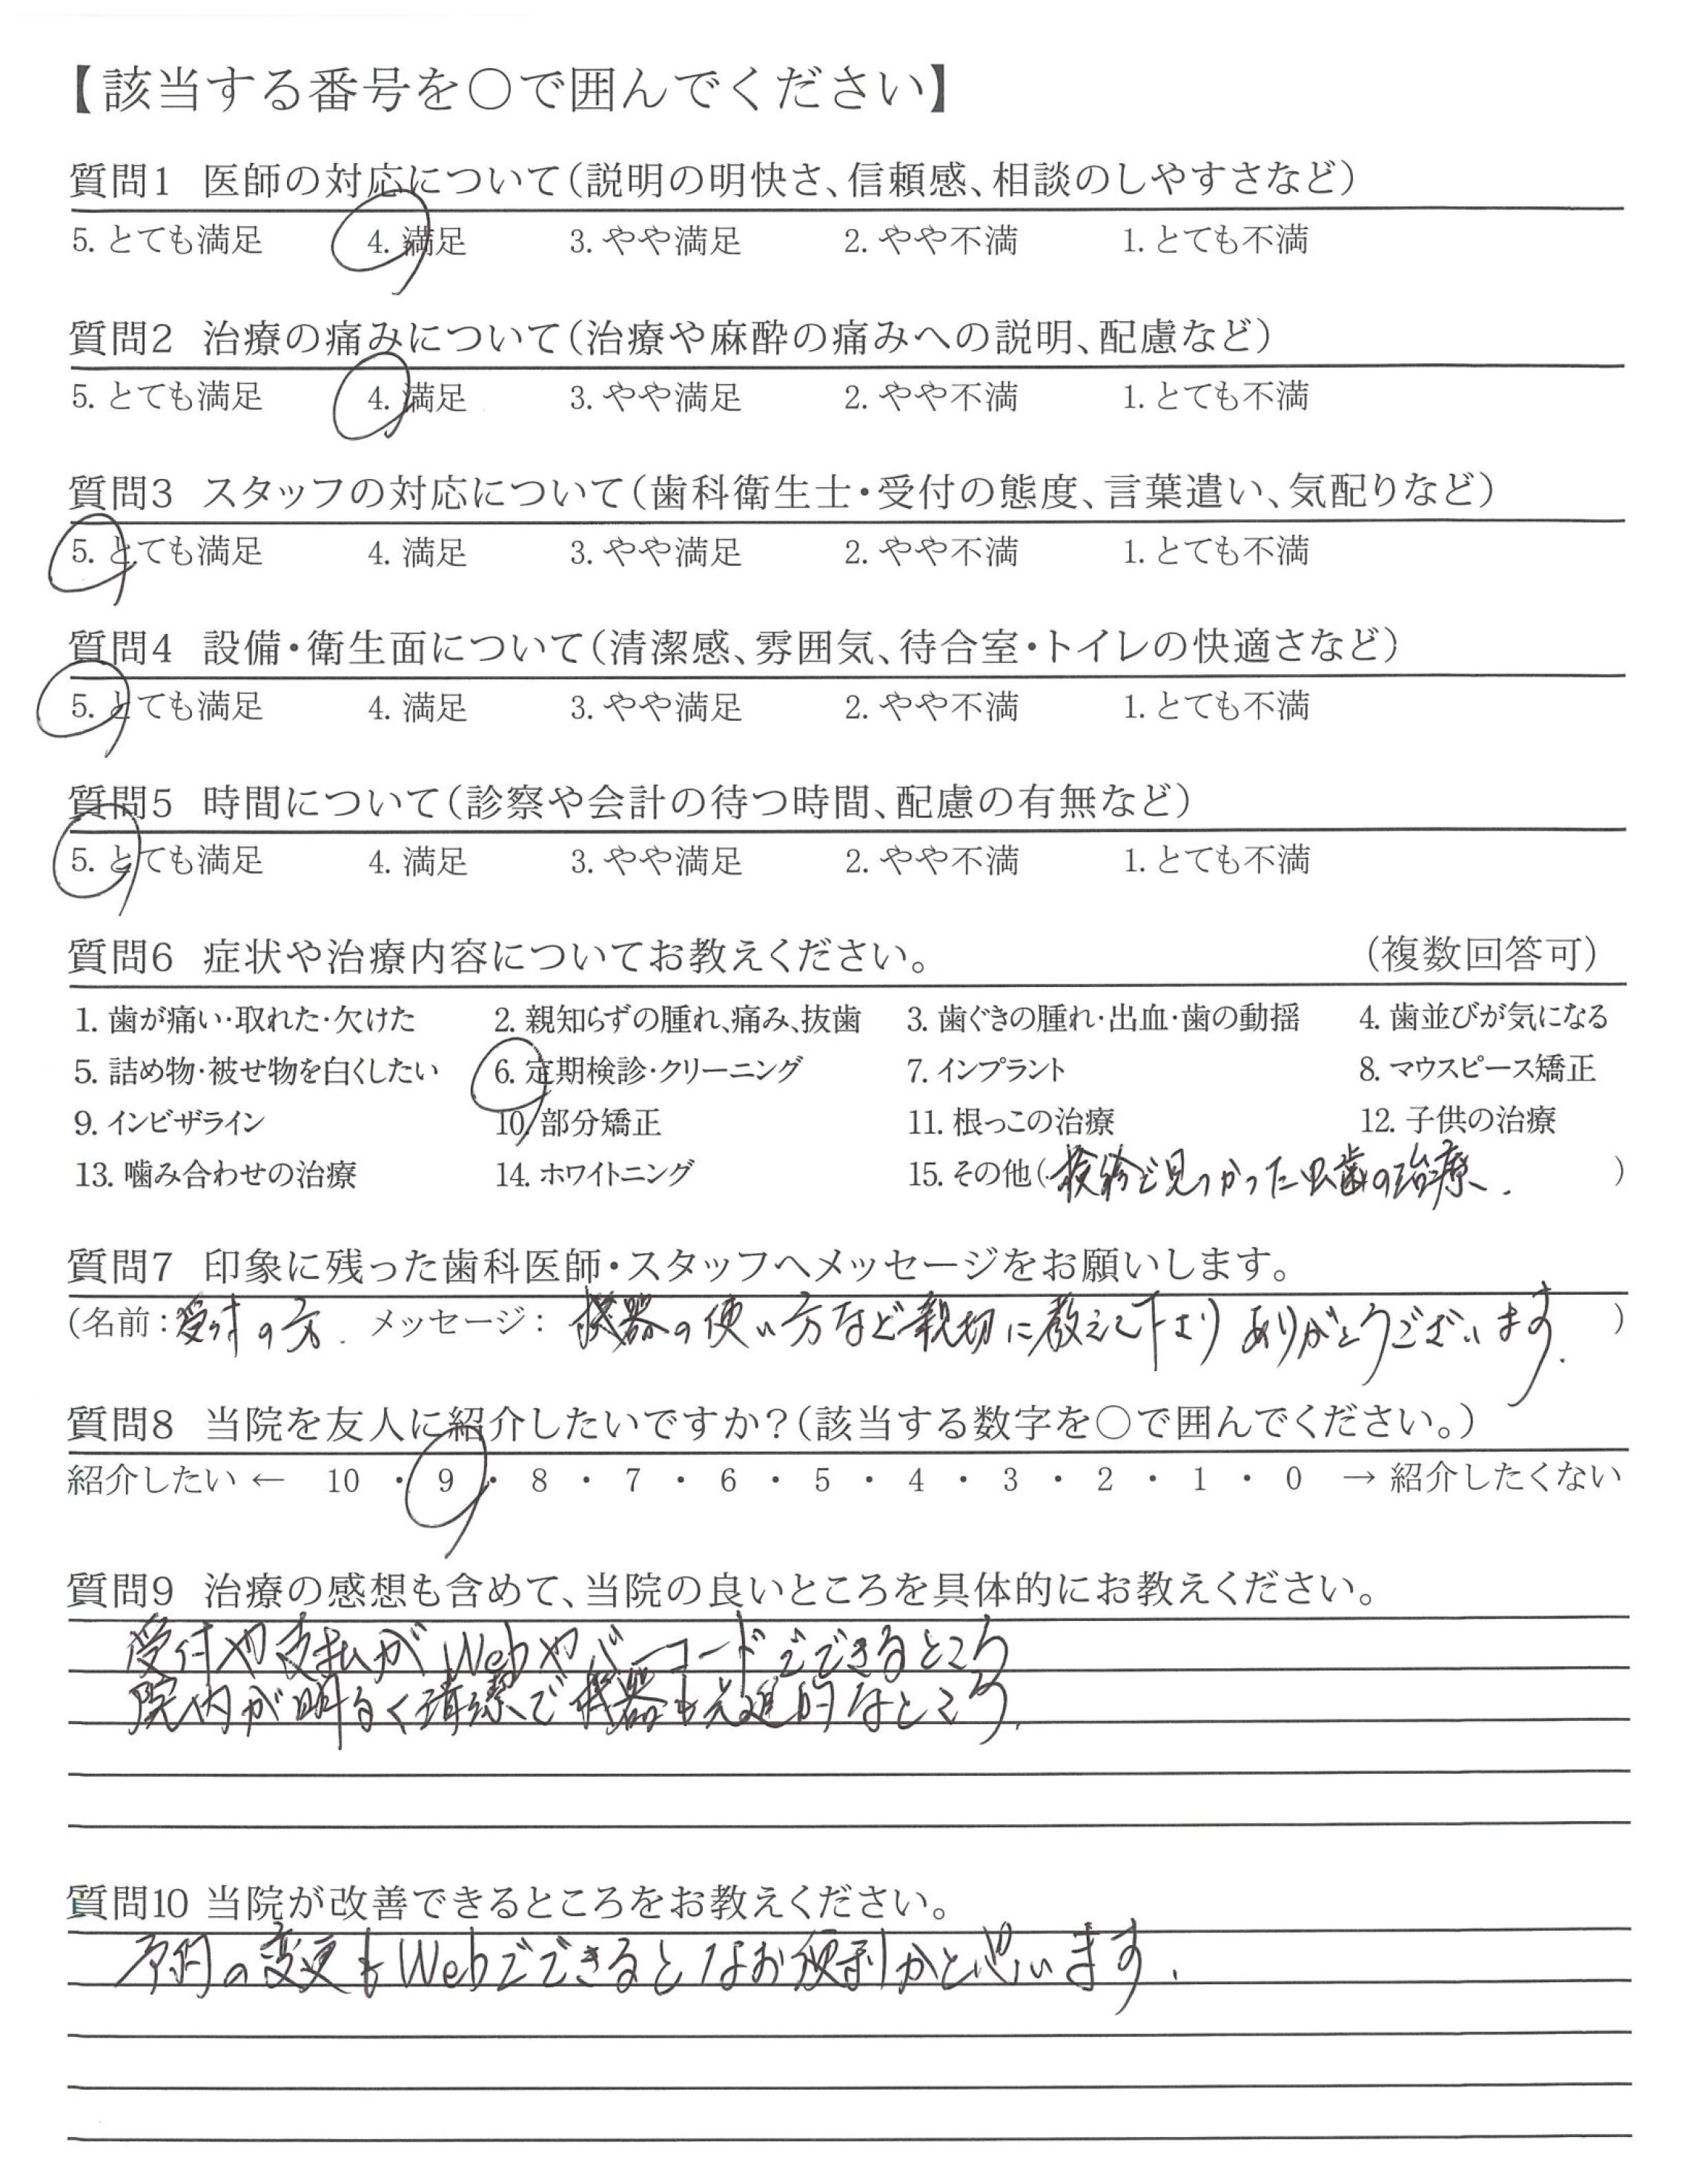 【該当する番号を○で囲んでください】
質問1 医師の対応について(説明の明快さ、信頼感、相談のしやすさなど)
5. とても満足 4. 満足 3. やや満足 2. やや不満 1. とても不満
質問2 治療の痛みについて(治療や麻酔の痛みへの説明、配慮など)
5. とても満足 4. 満足 3. やや満足 2. やや不満 1. とても不満
質問3 スタッフの対応について(歯科衛生士・受付の態度、言葉遣い、気配りなど)
5. とても満足 4. 満足 3. やや満足 2. やや不満 1. とても不満
質問4 設備・衛生面について(清潔感、雰囲気、待合室・トイレの快適さなど)
5. とても満足 4. 満足 3. やや満足 2. やや不満 1. とても不満
質問5 時間について(診察や会計の待つ時間、配慮の有無など)
5. とても満足 4. 満足 3. やや満足 2. やや不満 1. とても不満
質問6 症状や治療内容についてお教えください。 (複数回答可)
1. 歯が痛い・取れた・欠けた 2. 親知らずの腫れ、痛み、抜歯 3. 歯ぐきの腫れ・出血・歯の動揺 4. 歯並びが気になる
5. 詰め物・被せ物を白くしたい 6. 定期検診・クリーニング 7. インプラント 8. マウスピース矯正
9. インビザライン 10. 部分矯正 11. 根っこの治療 12. 子供の治療
13. 噛み合わせの治療 14. ホワイトニング 15. その他(検診で見つかった虫歯の治療. )
質問7 印象に残った歯科医師・スタッフへメッセージをお願いします。
(名前：受付の方. メッセージ： 機器の使い方など親切に教えて下さり ありがとうございます. )
質問8 当院を友人に紹介したいですか?(該当する数字を○で囲んでください。)
紹介したい ← 10 ・ 9 ・ 8 ・ 7 ・ 6 ・ 5 ・ 4 ・ 3 ・ 2 ・ 1 ・ 0 → 紹介したくない
質問9 治療の感想も含めて、当院の良いところを具体的にお教えください。
受付や支払が Webやバーコードでできるところ
院内が明るく清潔で機器も先進的なところ.
質問10 当院が改善できるところをお教えください。
予約の変更もWebでできるとなお便利かと思います.